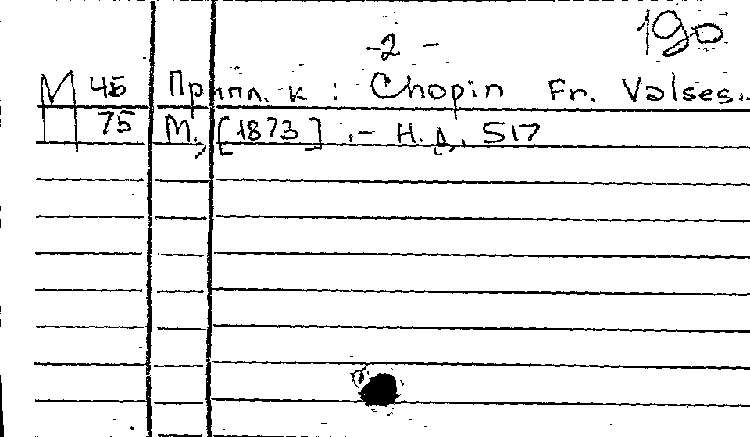 190
-2-
М 45 Припл. к : Chopin Fr. Valses.
75 М., [1873] .- Н.Д. 517